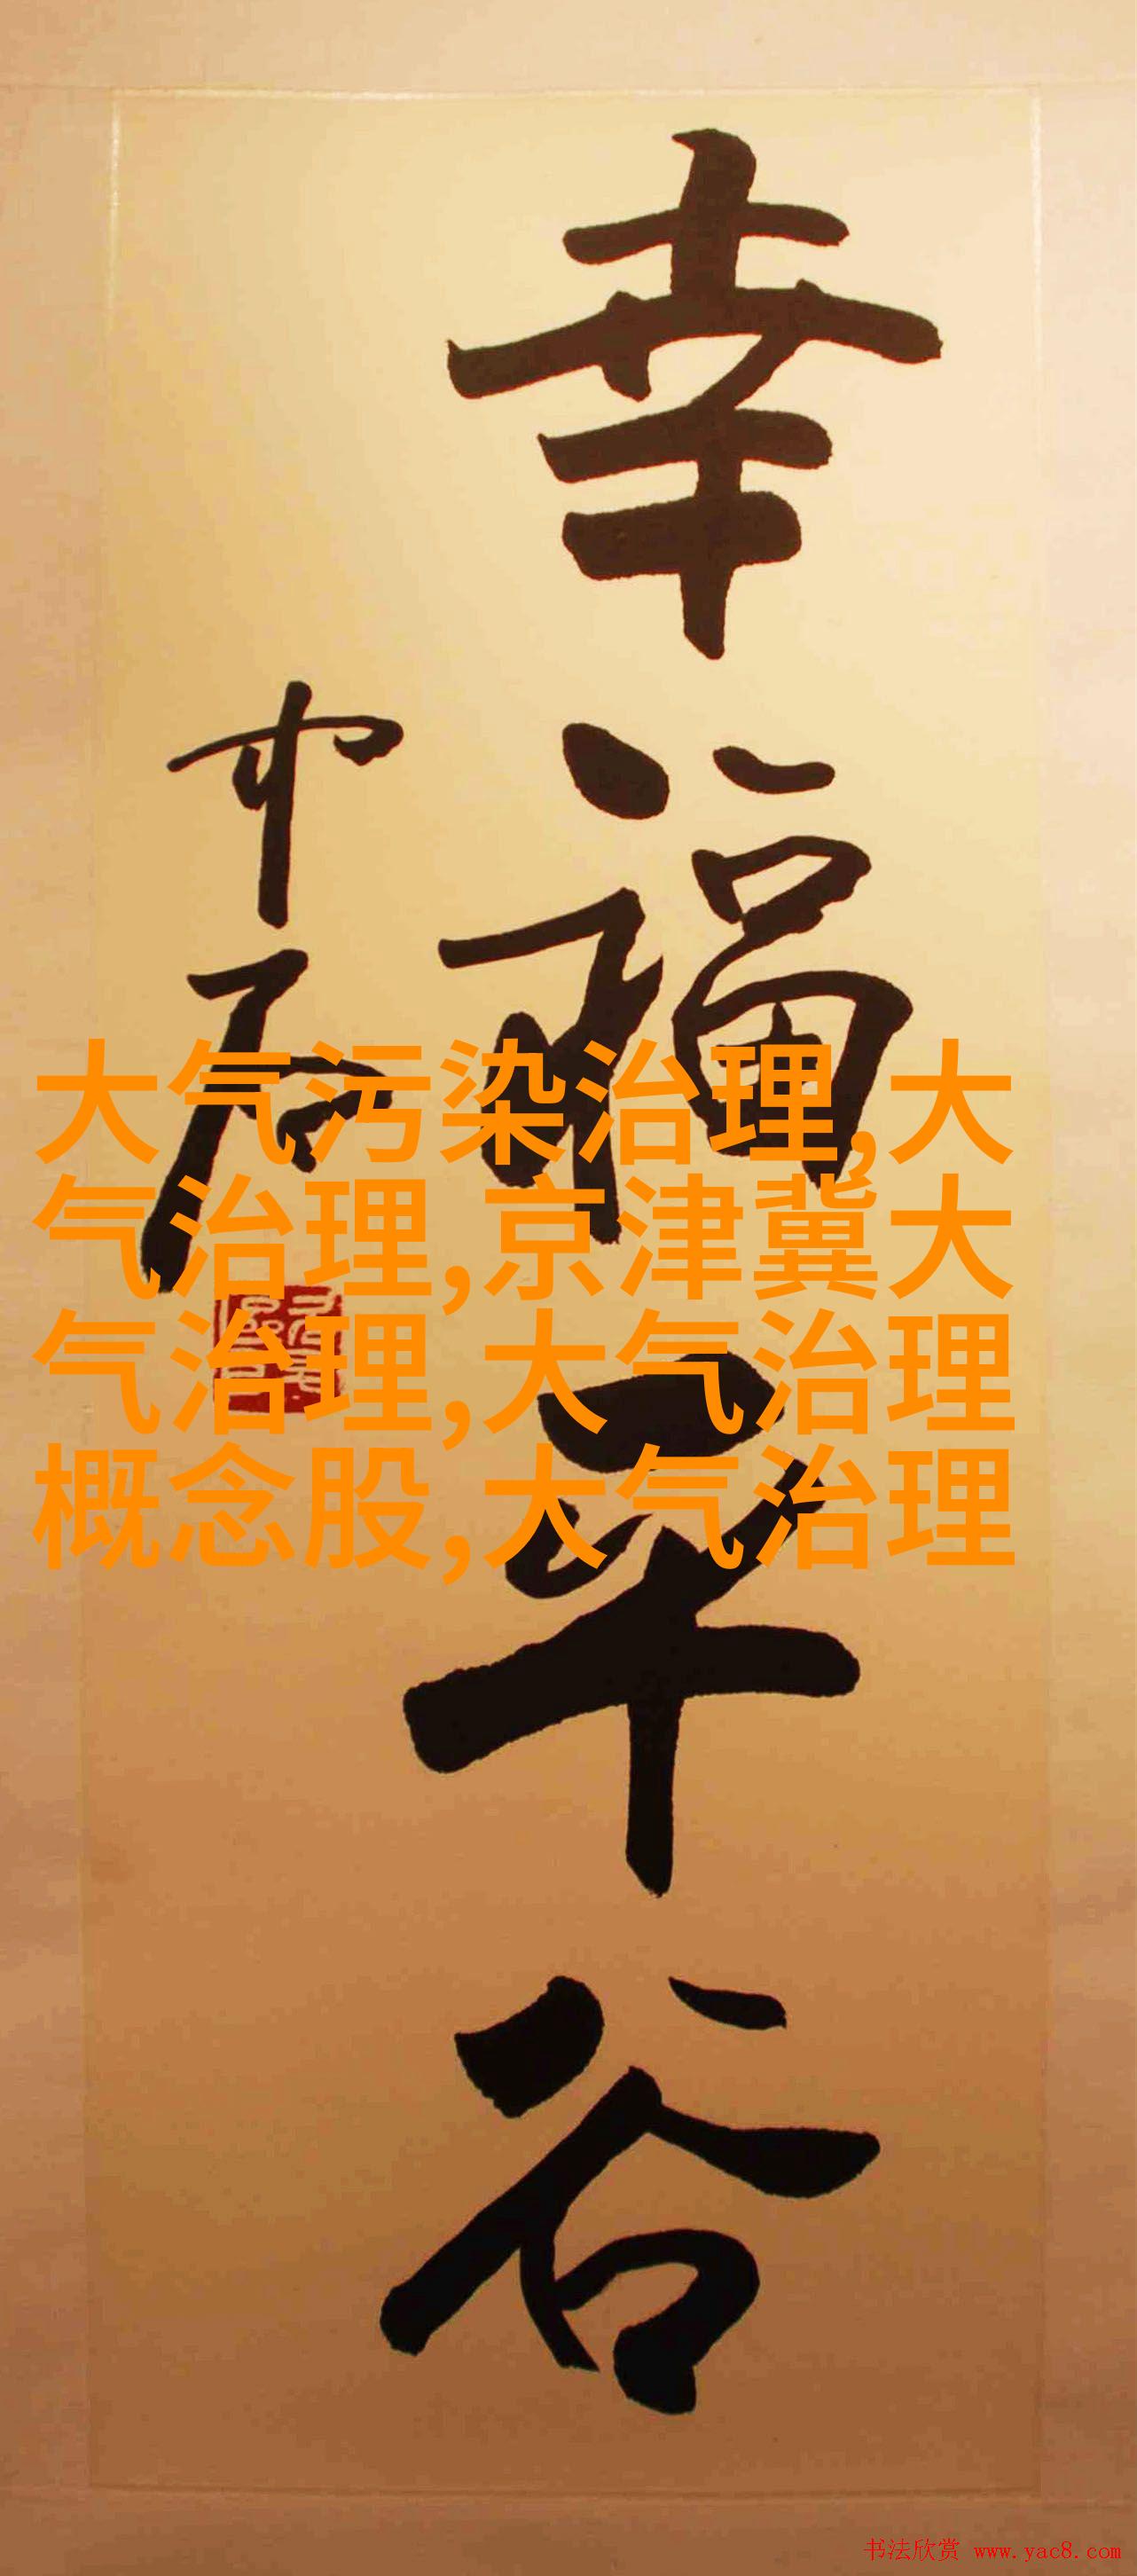 幸福平谷
中石
大气污染治理,大
气治理,京津冀大
气治理,大气治理
概念股,大气治理
书法欣赏 www.yac8.com